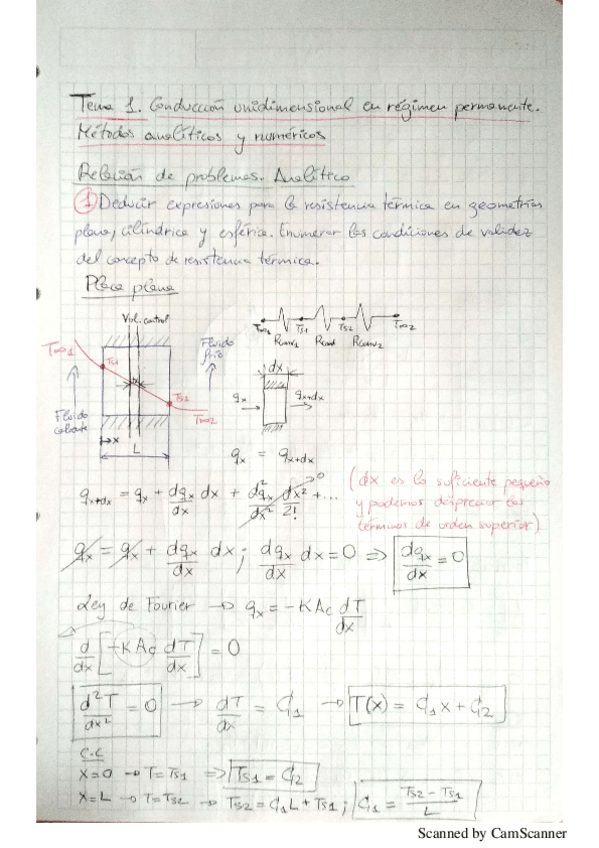 Tema 1. Conducción unidimensional en régimen permanente.
Métodos analíticos y numéricos
Relación de problemas. Analítico
① Deducir expresiones para la resistencia térmica en geometrías
plana, cilíndrica y esférica. Enumerar las condiciones de validez
del concepto de resistencia térmica.
Placa plana
Vol. control
T∞1 Rconv1 Ts1 Rcond Ts2 Rconv2 T∞2
T∞1
Ts1
Fluido
frío
dx
qx
qx+dx
Ts2
T∞2
Fluido
caliente
x
L
qx = qx+dx
qx+dx = qx + dqx/dx dx + d²qx/dx² dx²/2! + ... 0
(dx es lo suficiente pequeño
y podemos despreciar los
términos de orden superior)
qx = qx + dqx/dx dx ; dqx/dx dx = 0 ⇒ dqx/dx = 0
Ley de Fourier → qx = -KAc dT/dx
d/dx [-KAc dT/dx] = 0
d²T/dx² = 0 → dT/dx = C1 → T(x) = C1x + C2
C.C
x=0 → T=Ts1 ⇒ Ts1 = C2
x=L → T=Ts2 → Ts2 = C1L + Ts1 ; C1 = Ts2 - Ts1/L
Scanned by CamScanner